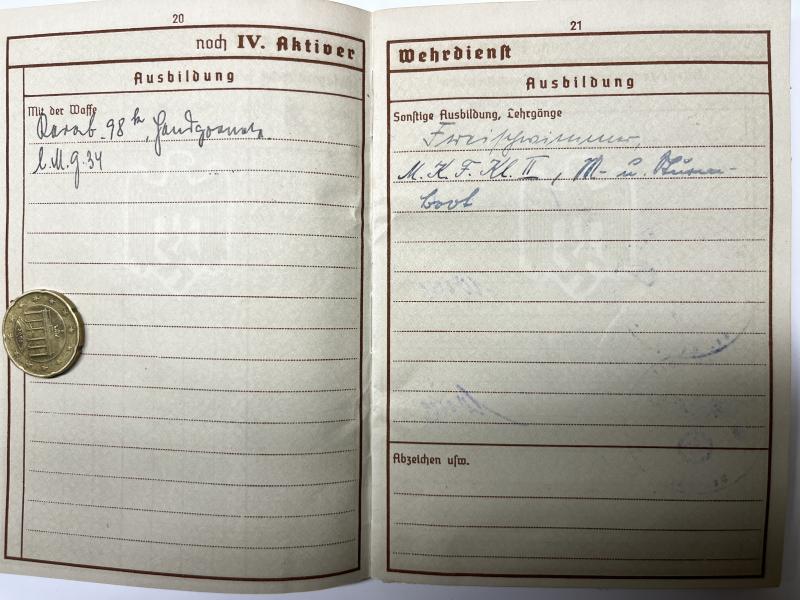 20
noch IV. Aktiver
Ausbildung
Mit der Waffe
Karab. 98 k, Handgranate
l. M. G. 34
21
Wehrdienst
Ausbildung
Sonstige Ausbildung, Lehrgänge
Freischwimmer,
M. K. F. Kl. II, M- u. Sturm-
boot
Abzeichen usw.